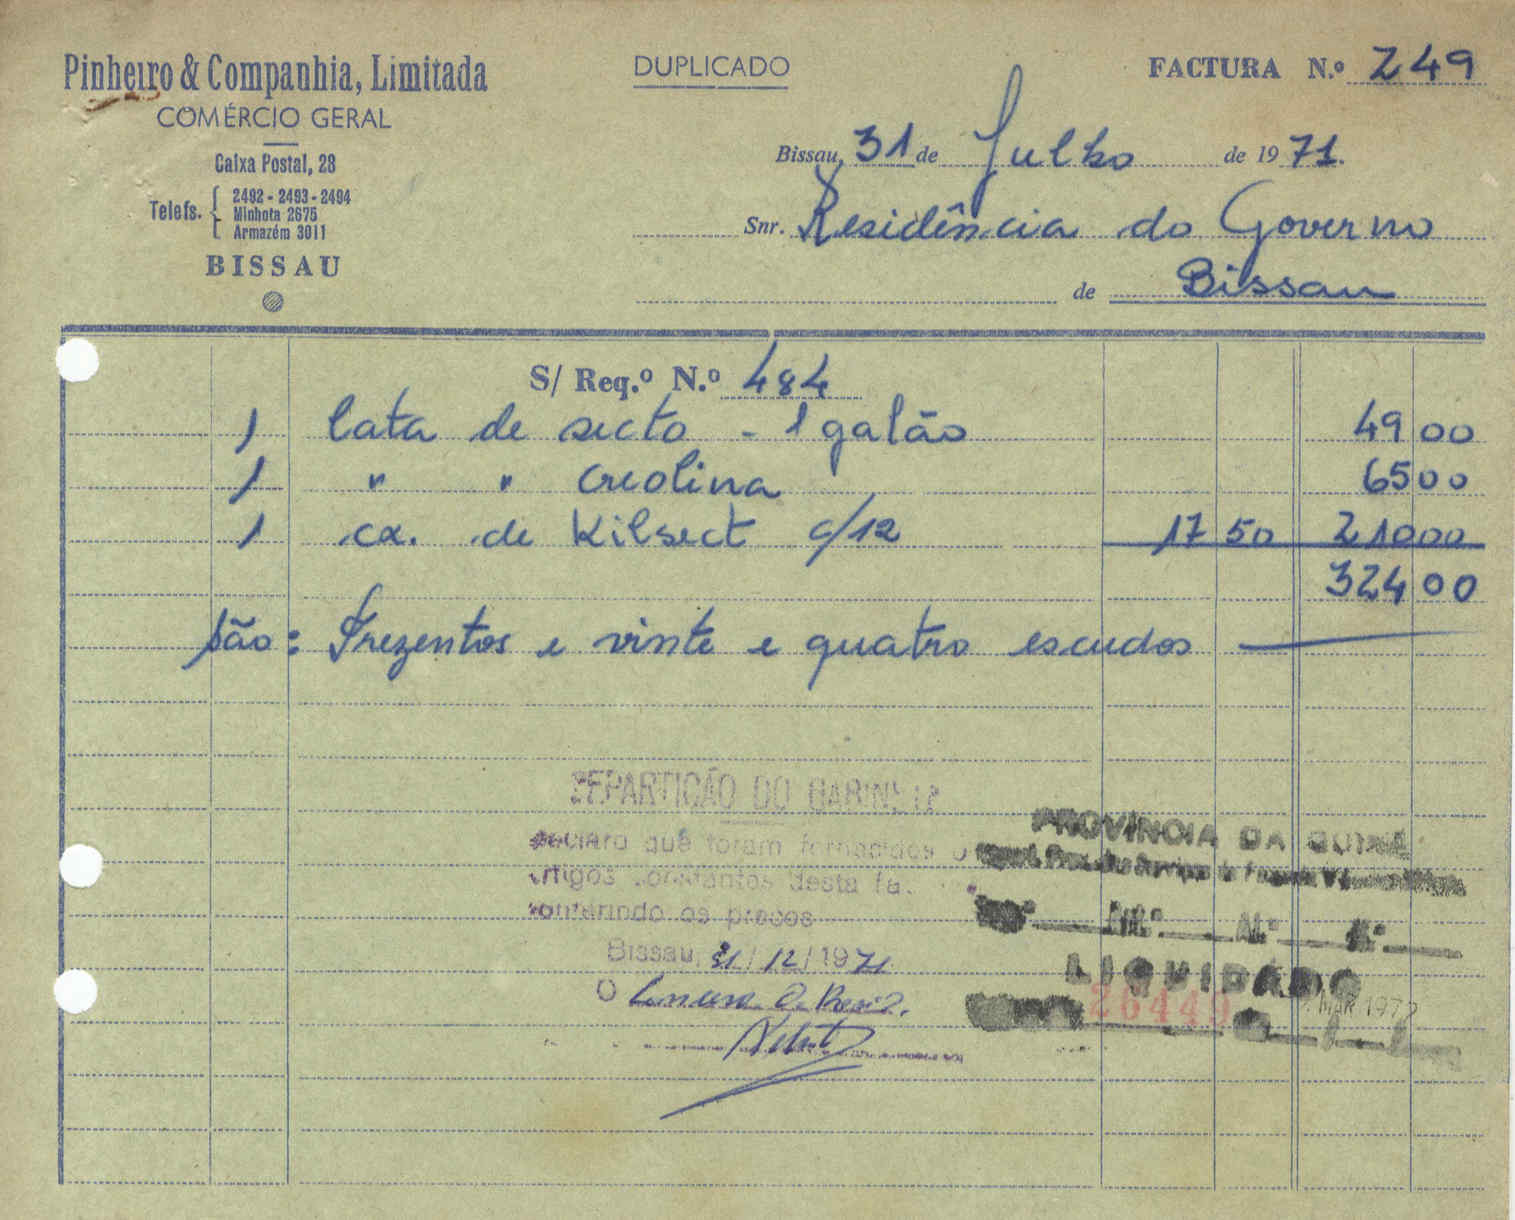 Pinheiro & Companhia, Limitada
COMÉRCIO GERAL
Caixa Postal, 28
Telefs. 2492 - 2493 - 2494
Minhota 2675
Armazém 3011
BISSAU
DUPLICADO
FACTURA N.º 249
Bissau, 31 de Julho de 1971.
Snr. Residência do Governo
de Bissau
S/ Req.º N.º 484
1 lata de secto - 1 galão 49 00
1 " " creolina 65 00
1 cx. de Kilsect c/12 17 50 210 00
324 00
São: Trezentos e vinte e quatro escudos
REPARTIÇÃO DO GABINETE
Declaro que foram fornecidos os
artigos constantes desta
conferindo os preços
Bissau, 31/12/1971
O
PROVÍNCIA DA GUINÉ
LIQUIDADO
26449
MAR 1972